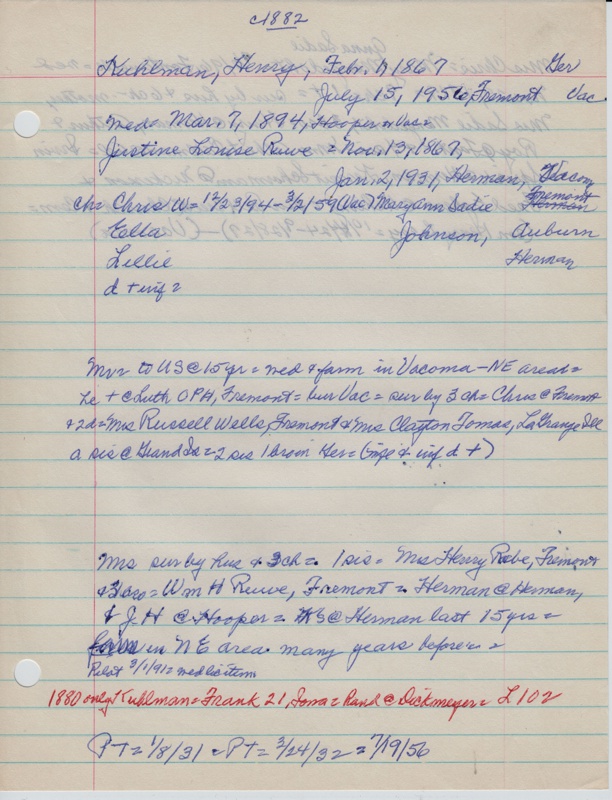 c1882
Kuhlman, Henry, Febr. 1867 Ger
July 15, 1956, Fremont Vac.
wed= Mar. 7, 1894, Hooper Vac=
Justine Louise Ruwe = Nov. 13, 1867,
Jan. 2, 1931, Herman, Vacom
Fremont
ch= Chris W= 12/23/94 - 3/2/59 (Vac) MaryAnn Sadie Herman
Etta Johnson, Auburn
Lillie Herman
d + inf =
Mvr to US @ 15 yr = wed & farm in Vacoma - NE area =
he + @ Luth OPH, Fremont = bur Vac = sur by 3 ch = Chris @ Fremt
+ 2d = Mrs Russell Wells, Fremont & Mrs Clayton Tomas, LaGrange Ill
a sis @ Grand Is = 2 sis 1 bro in Ger = ( & inf d +)
Mrs sur by hus + 3 ch = 1 sis = Mrs Henry Rabe, Fremont
+ 3 bro = Wm H Ruwe, Fremont = Herman @ Herman,
& J. H @ Hooper = @ Herman last 15 yrs =
farm in NE area many years before =
Pilot 3/1/91 = wed lic item
1880 only Kuhlman = Frank 21, Iowa = hand @ Dickmeyer = L102
PT = 1/8/31 = PT = 3/24/32 = 7/19/56